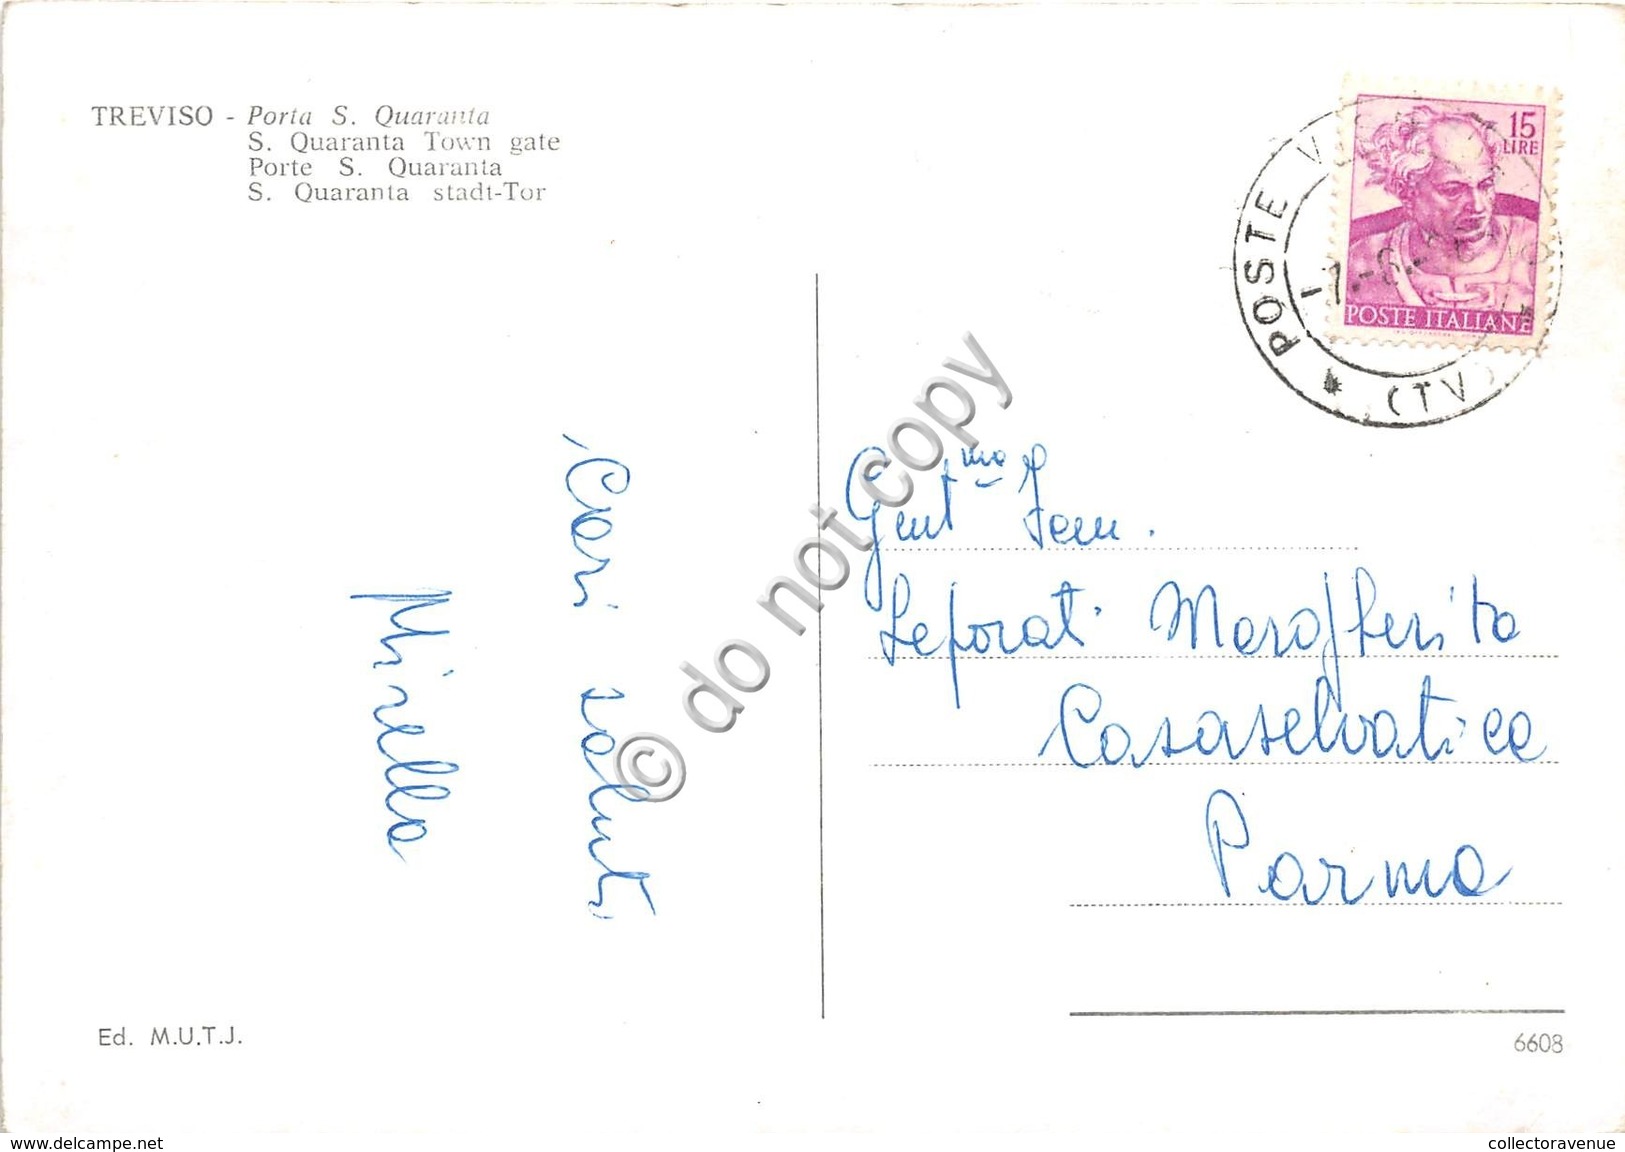 TREVISO - Porta S. Quaranta
S. Quaranta Town gate
Porte S. Quaranta
S. Quaranta stadt-Tor
15
LIRE
POSTE ITALIANE
POSTE
(TV)
Cari saluti
Mirella
Gent.ma Fam.
Leporati Margherita
Casaselvatica
Parma
© do not copy
Ed. M.U.T.J.
6608
www.delcampe.net
collectoravenue